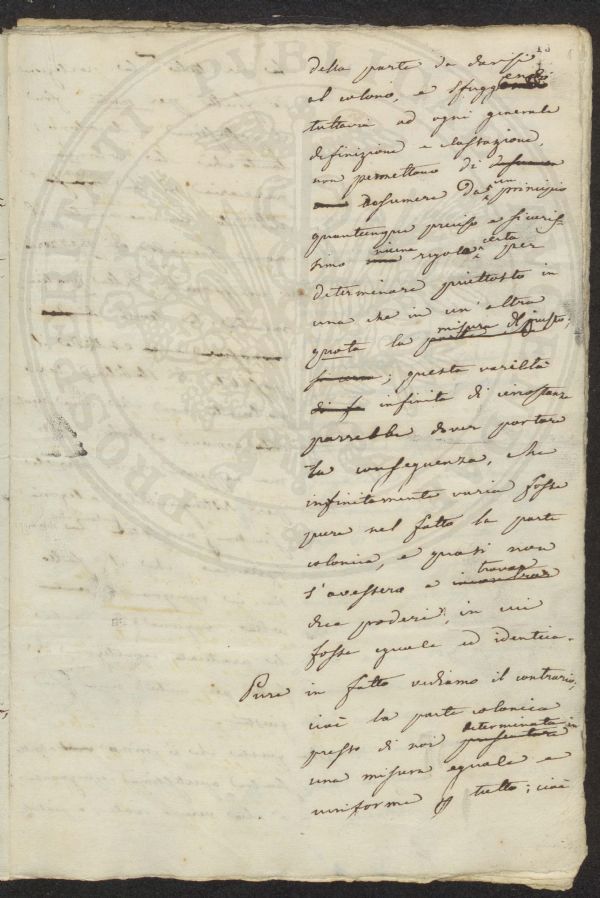 della parte da darsi
al colono, e sfuggendo
tuttavia ad ogni generale
definizione e classazione,
non permettono di desumere
desumere da un principio
quantunque preciso e sicuris-
simo niuna regola certa per
determinare piuttosto in
una che in un'altra
quota la misura del giusto;
questa varietà
infinita di circostanze
parrebbe dover portare
la conseguenza, che
infinitamente varia fosse
pure nel fatto la parte
colonica, e quasi non
s'avessero a trovar
due poderi, in cui
fosse eguale ed identica.
Pure in fatto vediamo il contrario,
cioè la parte colonica
presso di noi determinata in
una misura eguale e
uniforme p tutto; cioè
PUBLICA
PROSPERITATI